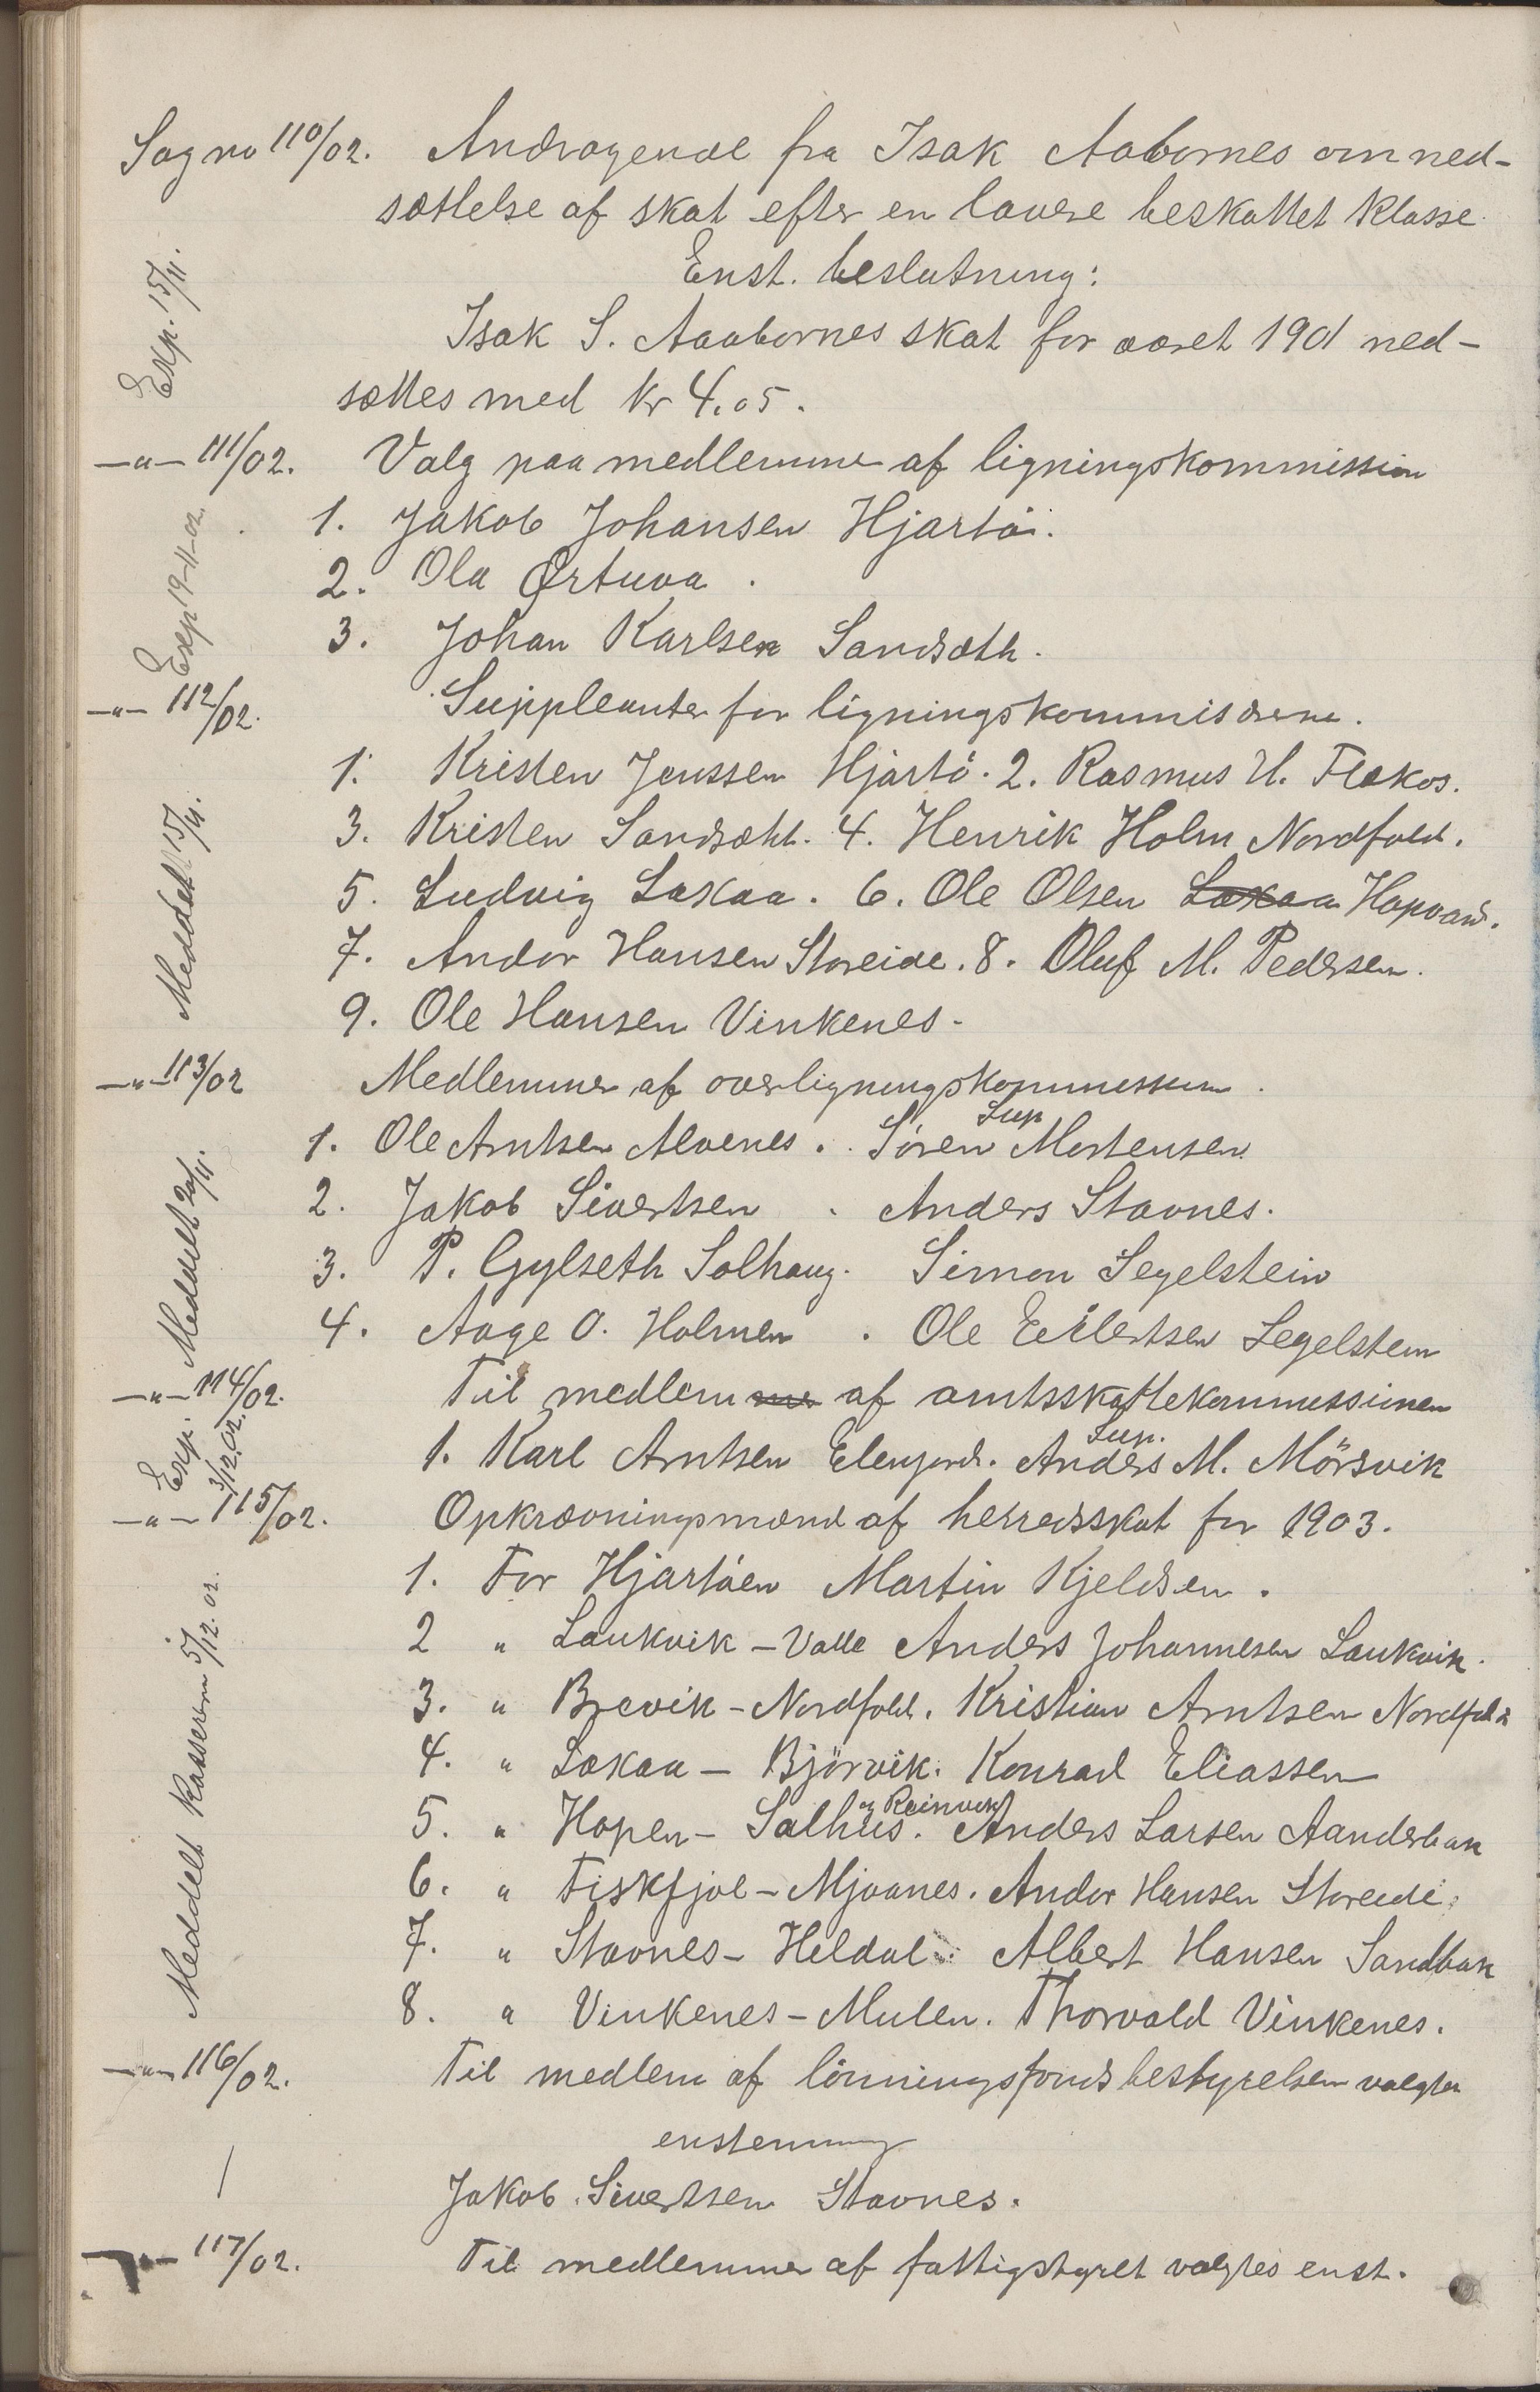 Sag no 110/02. Andragende fra Isak Aabornes om ned-
sættelse af skat efter en lavere beskattet klasse
Enst. beslutning:
Exp. 15/11.
Isak S. Aabornes skat for aaret 1901 ned-
sættes med kr 4.05.
—"— 111/02. Valg paa medlemmer af ligningskommission
Exp 19-11-02.
1. Jakob Johansen Hjartö.
2. Ola Ørtuva.
3. Johan Karlsen Sandsæth.
—"— 112/02. Suppleanter for ligningskommisærerne.
Meddelt 15/11.
1. Kristen Jenssen Hjartö. 2. Rasmus H. Flakos.
3. Kristen Sandsæht. 4. Henrik Holm Nordfold.
5. Ludvig Laxaa. 6. Ole Olsen Laxaa Hopvand.
7. Andor Hansen Storeide. 8. Oluf M. Pedersen.
9. Ole Hansen Vinkenes.
—"— 113/02 Medlemmer af overligningskommissionen.
Meddelt 20/11.
Sup
1. Ole Arntsen Alvenes. Sören Mortensen
2. Jakob Sivertsen. Anders Stavnes.
3. P. Gylseth Solhaug. Simon Segelstein
4. Aage O. Holmen. Ole Eilertsen Segelstein
—"— 114/02. Til medlemmer af amtsskattekommissionen
Exp. 3/12.02.
Sup.
1. Karl Arntsen Elenjord. Anders M. Mörsvik
—"— 115/02. Opkrævningsmænd af herredsskat for 1903.
Meddelt Kassereren 5/12.02.
1. For Hjartöen Martin Kjeldsen.
2 " Laukvik – Valle Anders Johannesen Laukvik.
3. " Brevik – Nordfold. Kristian Arntsen Nordfold
4. " Laxaa – Björvik. Konrad Eliassen
og Reinvik
5. " Hopen – Salhus. Anders Larsen Aanderbak
6. " Fiskfjol – Mjoanes. Andor Hansen Storeide.
7. " Stavnes – Heldal. Albert Hansen Sandbak
8. " Vinkenes – Mulen. Thorvald Vinkenes.
—"— 116/02. Til medlem af lönningsfondsbestyrelsen valgtes
enstemmig
Jakob Sivertsen Stavnes.
—"— 117/02. Til medlemmer af fattigstyret valgtes enst.